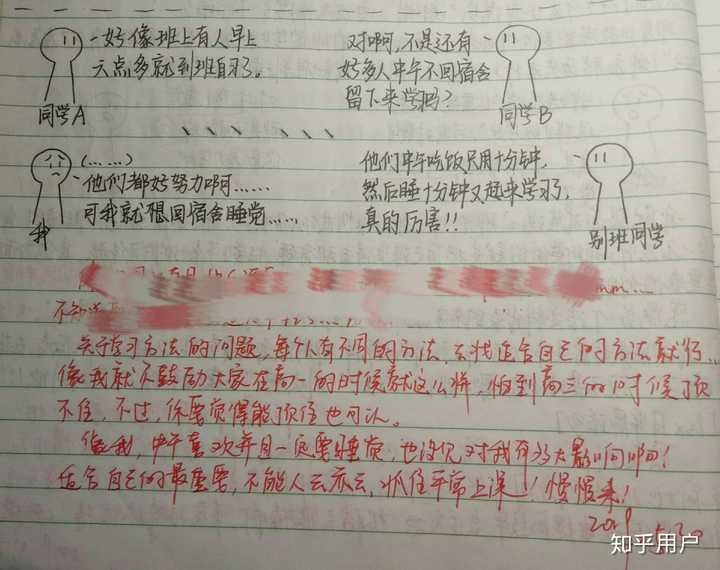 好像班上有人早上
六点多就到班自习了。
同学A
对啊,不是还有
好多人中午不回宿舍
留下来学吗?
同学B
、、、、、、
(……)
他们都好努力啊……
可我就想回宿舍睡觉……
我
他们中午吃饭只用十分钟,
然后睡十分钟又起来学习了,
真的厉害!!
别班同学
mm...
不知道
关于学习方法的问题,每个人有不同的方法,去找适合自己的方法就行...
像我就不鼓励大家在高一的时候就这么拼,怕到高三的时候顶
不住,不过,你要觉得能顶住也可以。
像我,中午喜欢并且一定要睡觉,也没见对我有多大影响啊!
适合自己的最重要,不能人云亦云,抓住平常上课!慢慢来!
2019 5.30
知乎用户